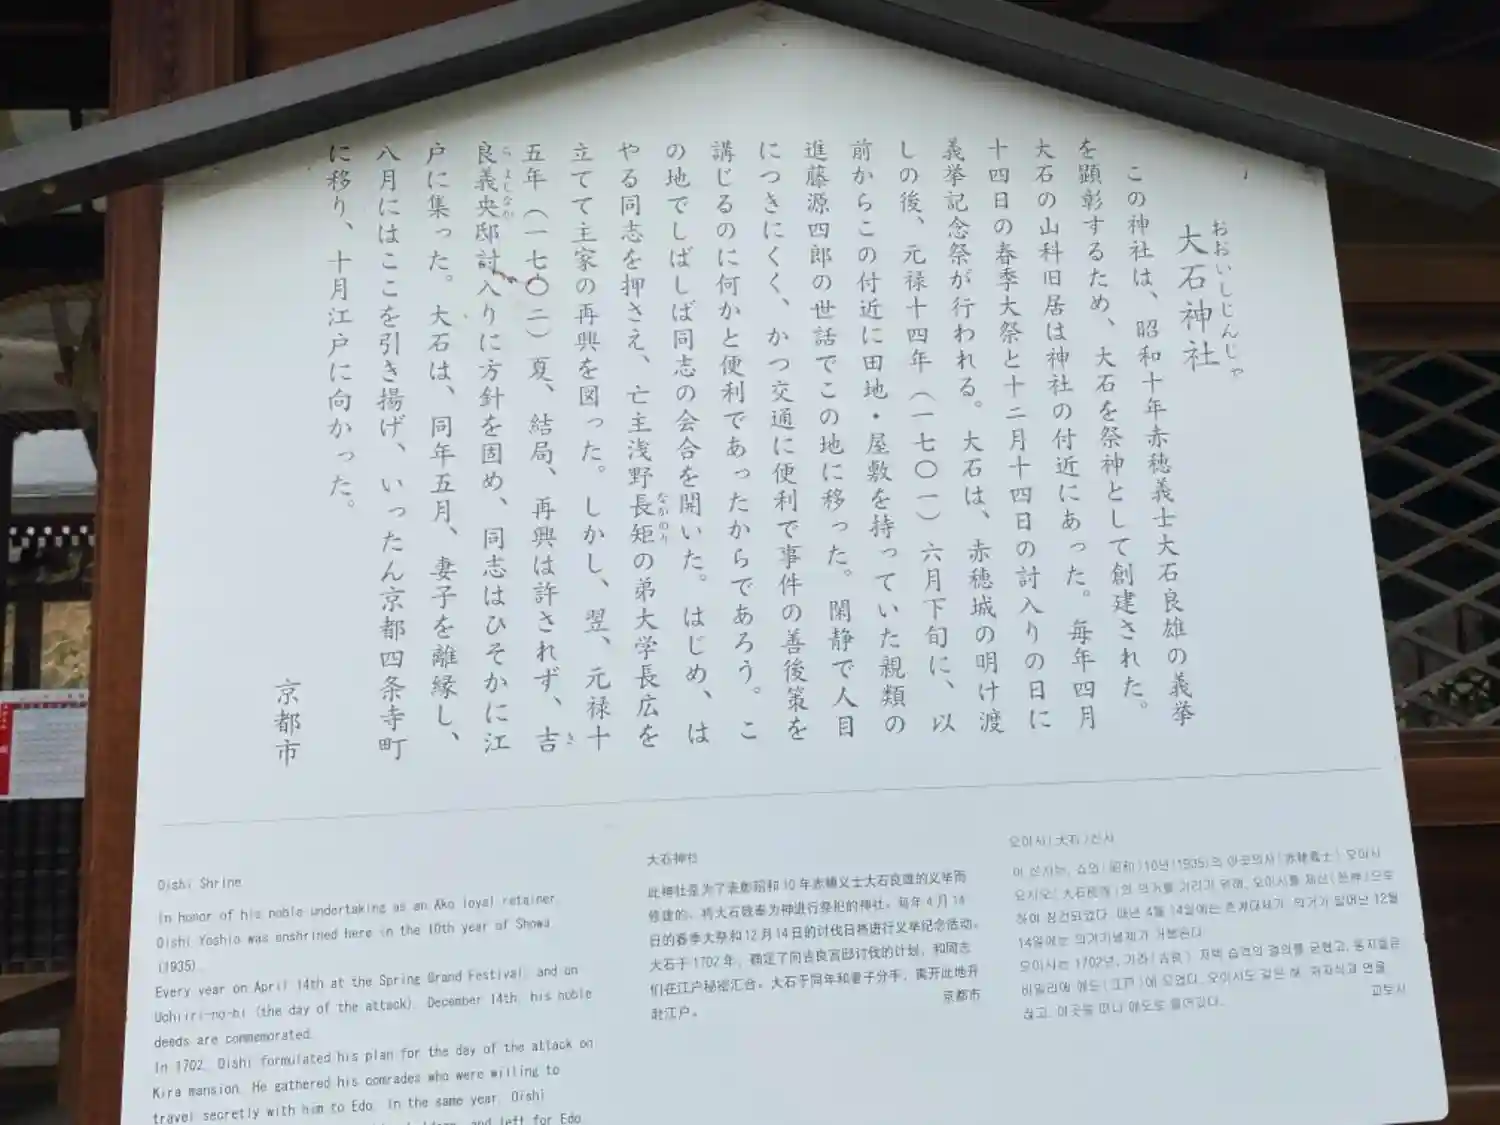 おおいしじんじゃ
大石神社
この神社は、昭和十年赤穂義士大石良雄の義挙
を顕彰するため、大石を祭神として創建された。
大石の山科旧居は神社の付近にあった。毎年四月
十四日の春季大祭と十二月十四日の討入りの日に
義挙記念祭が行われる。大石は、赤穂城の明け渡
しの後、元禄十四年（一七〇一）六月下旬に、以
前からこの付近に田地・屋敷を持っていた親類の
進藤源四郎の世話でこの地に移った。閑静で人目
につきにくく、かつ交通に便利で事件の善後策を
講じるのに何かと便利であったからであろう。こ
の地でしばしば同志の会合を開いた。はじめ、は
やる同志を押さえ、亡主浅野長矩の弟大学長広を
ながのり
立てて主家の再興を図った。しかし、翌、元禄十
五年（一七〇二）夏、結局、再興は許されず、吉
き
良義央邸討入りに方針を固め、同志はひそかに江
らよしなか
戸に集った。大石は、同年五月、妻子を離縁し、
八月にはここを引き揚げ、いったん京都四条寺町
に移り、十月江戸に向かった。
京都市
Oishi Shrine
In honor of his noble undertaking as an Ako loyal retainer,
Oishi Yoshio was enshrined here in the 10th year of Showa
(1935).
Every year on April 14th at the Spring Grand Festival, and on
Uchiiri-no-hi (the day of the attack), December 14th, his noble
deeds are commemorated.
In 1702, Oishi formulated his plan for the day of the attack on
Kira mansion. He gathered his comrades who were willing to
travel secretly with him to Edo. In the same year, Oishi
and left for Edo
大石神社
此神社是为了表彰昭和10年赤穗义士大石良雄的义举而
修建的、将大石敬奉为神进行祭祀的神社。每年4月14
日的春季大祭和12月14日的讨伐日将进行义举纪念活动。
大石于1702年，确定了向吉良宫邸讨伐的计划，和同志
们在江户秘密汇合。大石于同年和妻子分手，离开此地开
赴江户。
京都市
오이시(大石)신사
이 신사는, 쇼와(昭和)10년(1935)의 아코의사(赤穂義士) 오이시
요시오(大石良雄)의 의거를 기리기 위해, 오이시를 제신(祭神)으로
하여 창건되었다. 매년 4월 14일에는 춘계대제가, 의거가 일어난 12월
14일에는 의거기념제가 거행된다.
오이시는 1702년, 기라(吉良) 저택 습격의 결의를 굳혔고, 동지들은
비밀리에 에도(江戸)에 모였다. 오이시도 같은 해, 처자식과 연을
끊고, 이곳을 떠나 에도로 들어갔다.
교토시